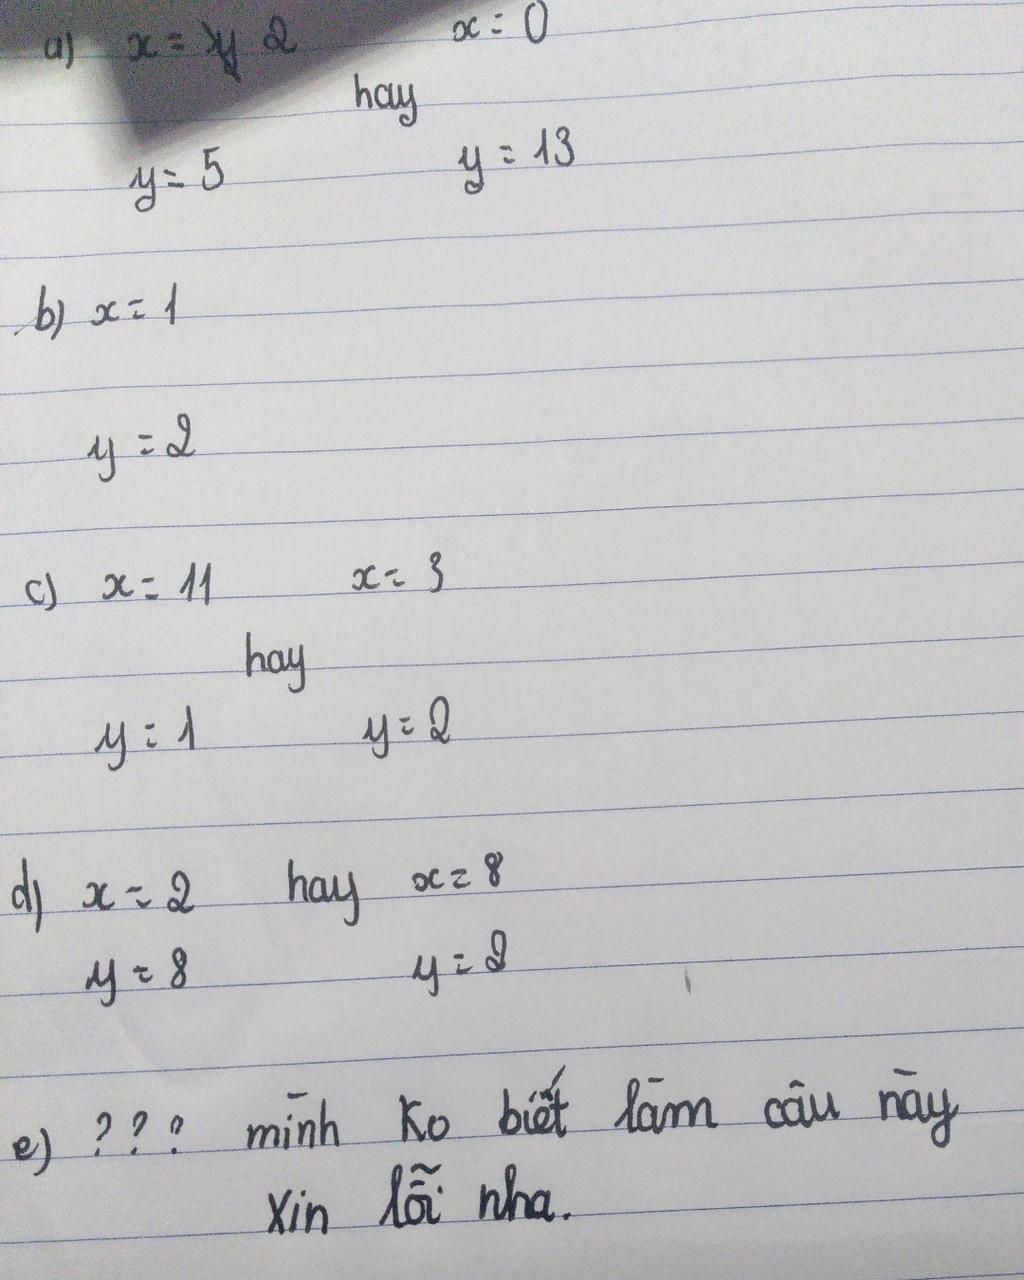 a) x = 2 x = 0
hay
y = 5 y = 13
b) x = 1
y = 2
c) x = 11 x = 3
hay
y = 1 y = 2
d) x = 2 hay x = 8
y = 8 y = 2
e) ? ? ? mình ko biết làm câu này
xin lỗi nha.